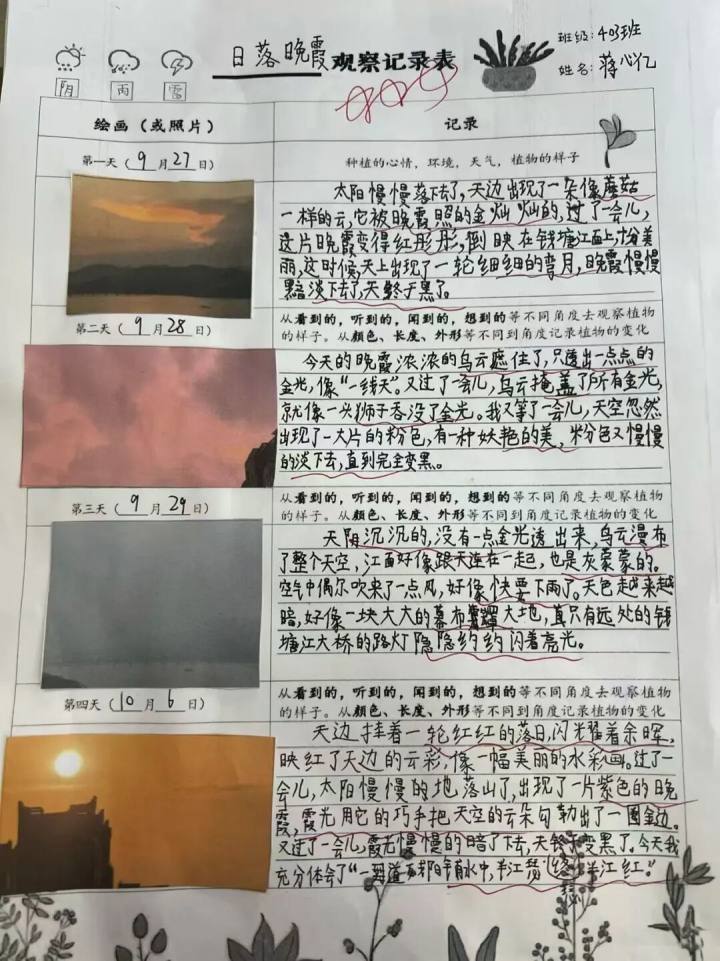 日落晚霞观察记录表
班级：403班
姓名：蒋心亿
阴 雨 雷
绘画（或照片）
记录
第一天（9月27日）
种植的心情，环境，天气，植物的样子
太阳慢慢落下去了，天边出现了一朵像蘑菇
一样的云，它被晚霞照的金灿灿的，过了一会儿，
这片晚霞变得红彤彤，倒映在钱塘江面上，十分美
丽，这时候，天上出现了一轮细细的弯月，晚霞慢慢
黯淡下去了，天终于黑了。
第二天（9月28日）
从看到的，听到的，闻到的，想到的等不同角度去观察植物
的样子。从颜色、长度、外形等不同到角度记录植物的变化
今天的晚霞浓浓的乌云遮住了，只透出一点点的
金光，像“一线天”。又过了一会儿，乌云掩盖了所有金光，
就像一头狮子吞没了金光。我又等了一会儿，天空忽然
出现了一大片的粉色，有一种妖艳的美，粉色又慢慢
的淡下去，直到完全变黑。
第三天（9月29日）
从看到的，听到的，闻到的，想到的等不同角度去观察植物
的样子。从颜色、长度、外形等不同到角度记录植物的变化
天阴沉沉的，没有一点金光透出来，乌云漫布
了整个天空，江面好像跟天连在一起，也是灰蒙蒙的。
空气中偶尔吹来了一点风，好像快要下雨了。天色越来越
暗，好像一块大大的幕布大地，真只有远处的钱
塘江大桥的路灯隐隐约约闪着亮光。
第四天（10月6日）
从看到的，听到的，闻到的，想到的等不同角度去观察植物
的样子。从颜色、长度、外形等不同到角度记录植物的变化
天边挂着一轮红红的落日，闪光耀着余晖，
映红了天边的云彩，像一幅美丽的水彩画。过了一
会儿，太阳慢慢的地落山了，出现了一片紫色的晚
霞，霞光用它的巧手把天空的云朵勾勒出了一圈金边。
又过了一会儿，霞光慢慢的暗了下去，天终于变黑了。今天我
充分体会了“一道残阳铺水中，半江瑟半江红。”